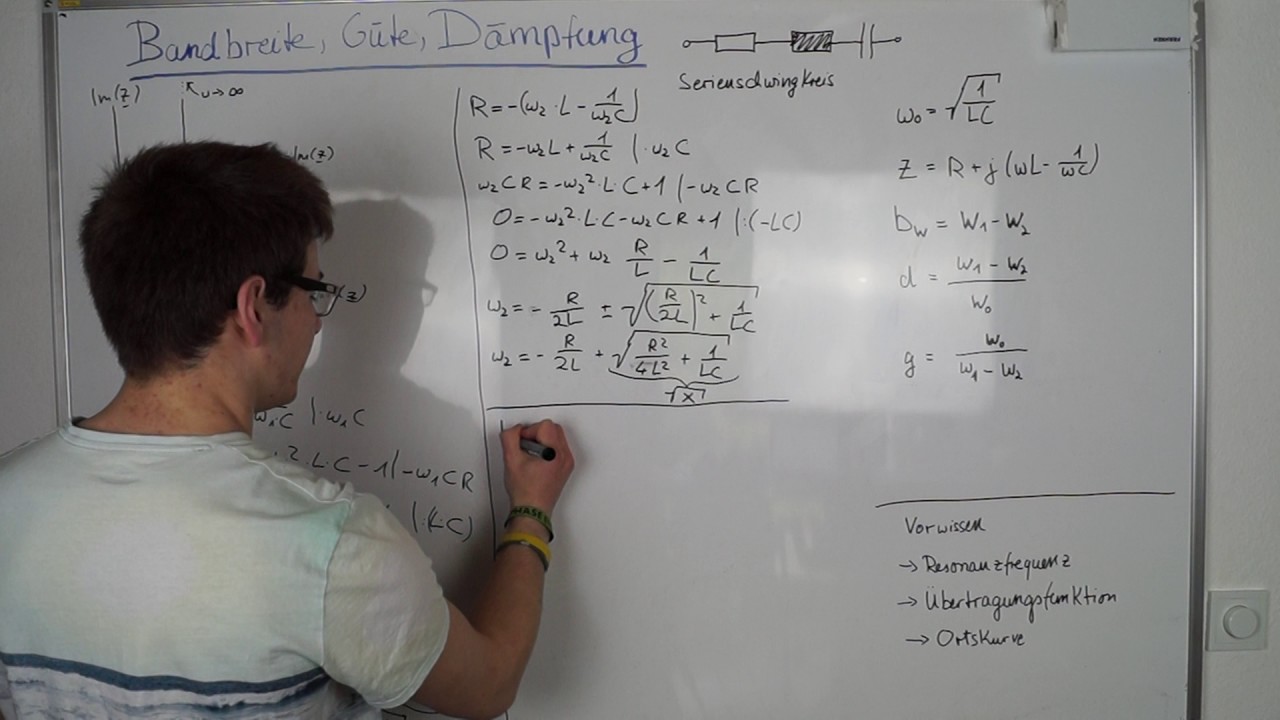 Bandbreite, Güte, Dämpfung
Serienschwingkreis
Im(z)
ω→∞
Im(z)
(z)
ω₁C |·ω₁C
²·L·C-1|-ω₁CR
|:(L·C)
R=-(ω₂·L-1/(ω₂C))
R=-ω₂L+1/(ω₂C) |·ω₂C
ω₂CR=-ω₂²·L·C+1 |-ω₂CR
0=-ω₂²·L·C-ω₂CR+1 |:(-LC)
0=ω₂²+ω₂ R/L - 1/(LC)
ω₂=- R/(2L) ± √((R/(2L))² + 1/(LC))
ω₂=- R/(2L) + √(R²/(4L²) + 1/(LC))
√x
ω₀=√(1/(LC))
Z = R+j(ωL-1/(ωC))
bω = ω₁-ω₂
d = (ω₁-ω₂)/ω₀
g = ω₀/(ω₁-ω₂)
Vorwissen
→ Resonanzfrequenz
→ Übertragungsfunktion
→ Ortskurve